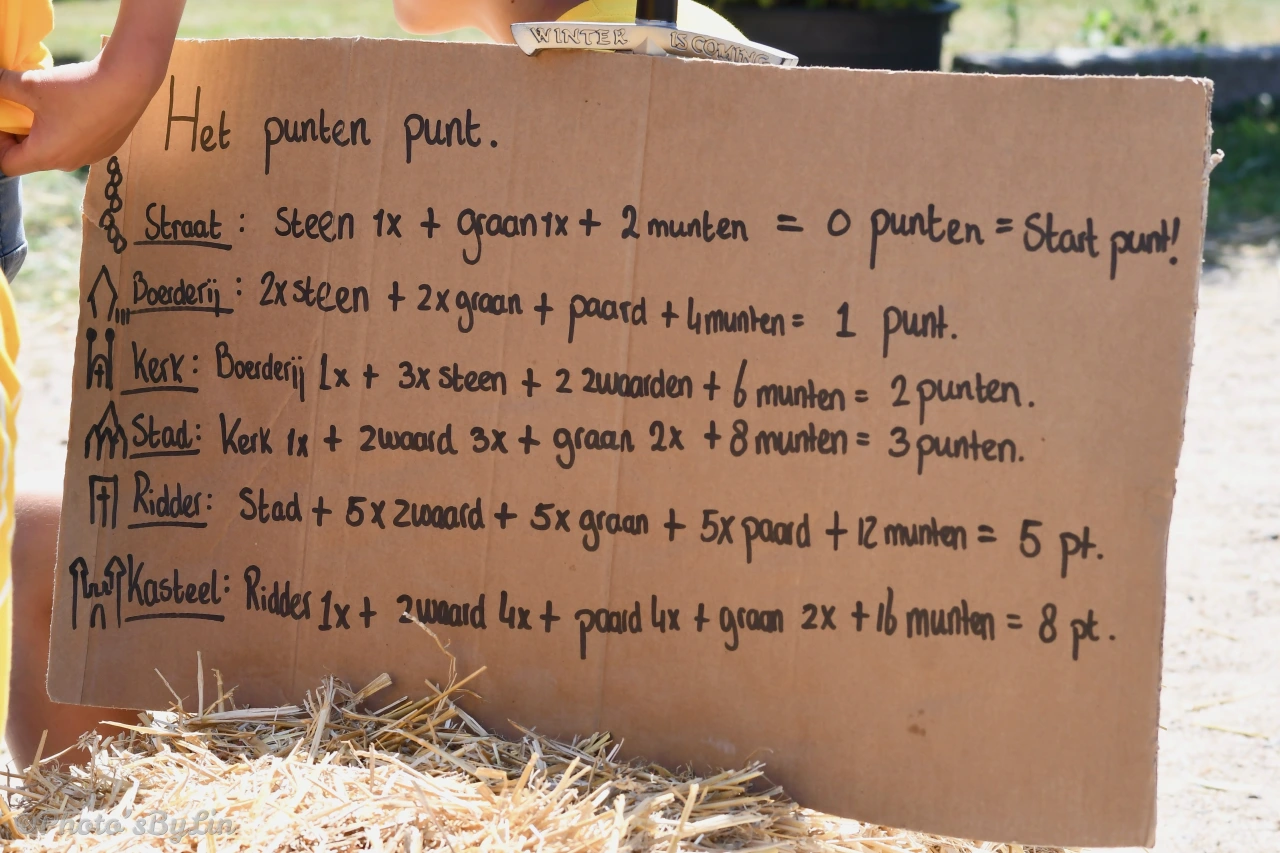 WINTER IS COMING
Het punten punt.
Straat: Steen 1x + graan 1x + 2 munten = 0 punten = Start punt!
Boerderij: 2x steen + 2x graan + paard + 4 munten = 1 punt.
Kerk: Boerderij 1x + 3x steen + 2 zwaarden + 6 munten = 2 punten.
Stad: Kerk 1x + zwaard 3x + graan 2x + 8 munten = 3 punten.
Ridder: Stad + 5x zwaard + 5x graan + 5x paard + 12 munten = 5 pt.
Kasteel: Ridder 1x + zwaard 4x + paard 4x + graan 2x + 16 munten = 8 pt.
©Photo'sByLin